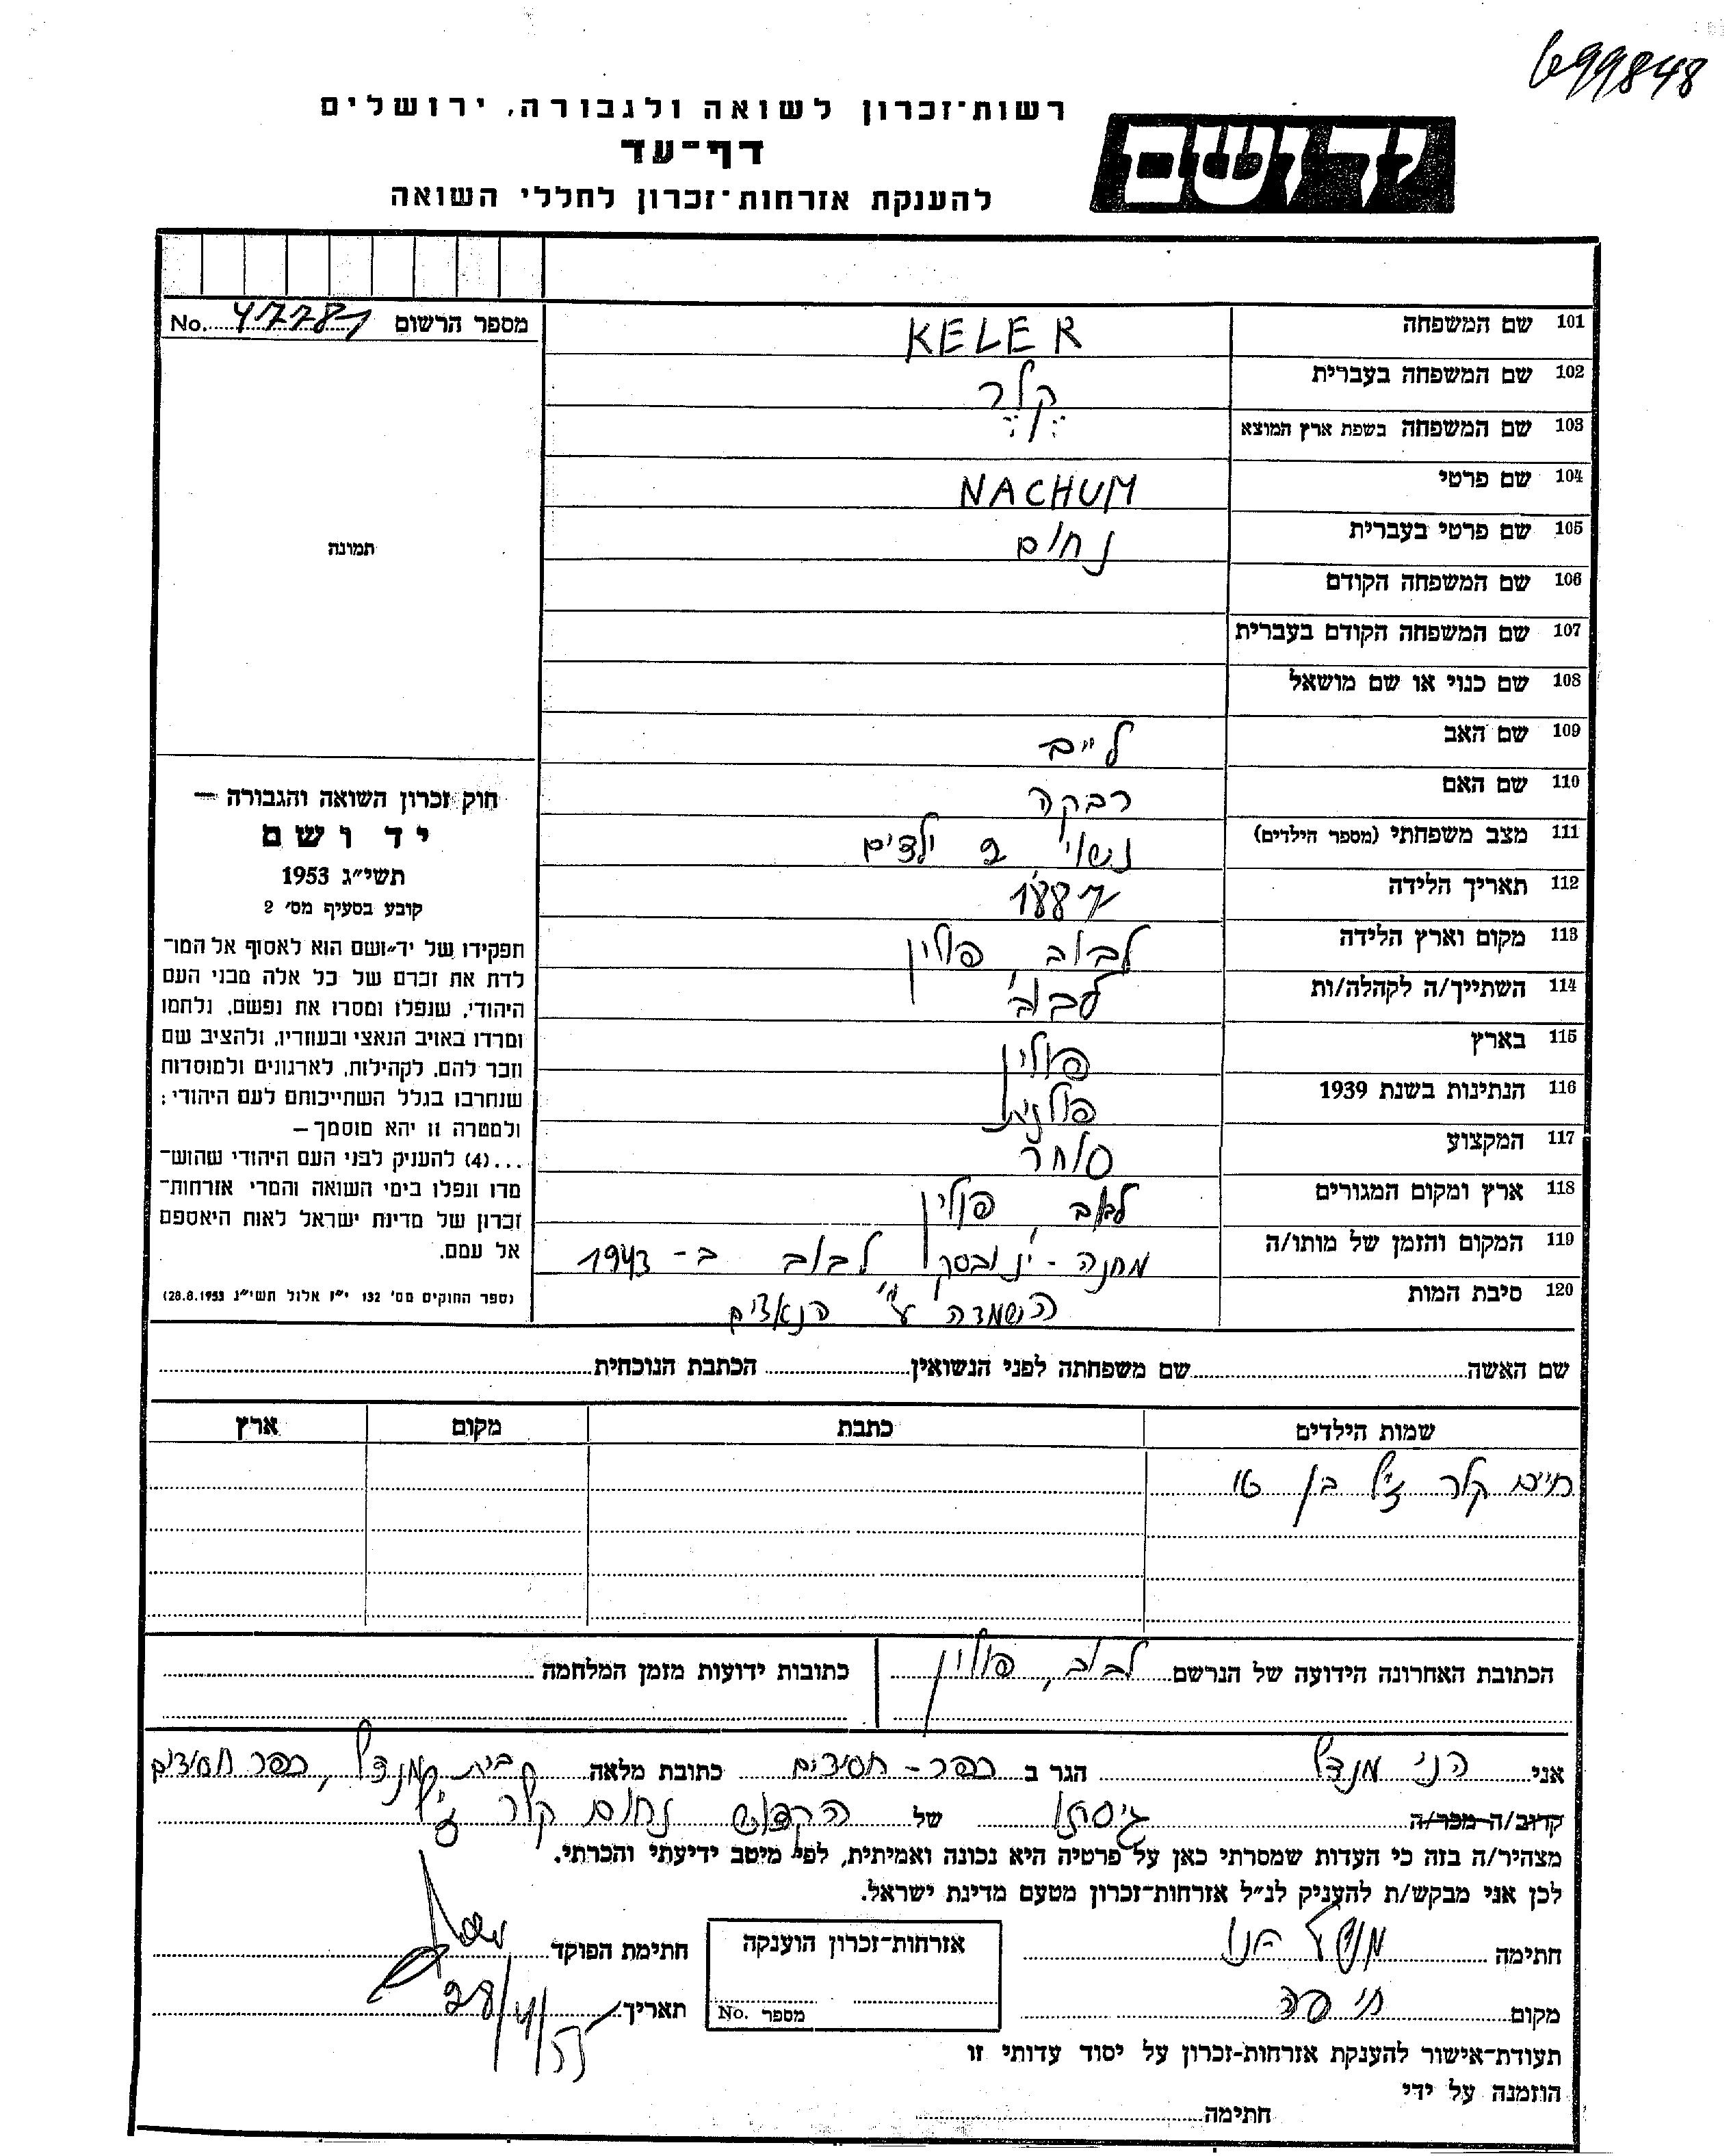 699848
רשות־זכרון לשואה ולגבורה, ירושלים
דף־עד
להענקת אזרחות־זכרון לחללי השואה
יד ושם
מספר הרשום No. 47781
תמונה
101 שם המשפחה KELER
102 שם המשפחה בעברית קלר
103 שם המשפחה בשפת ארץ המוצא
104 שם פרטי NACHUM
105 שם פרטי בעברית נחום
106 שם המשפחה הקודם
107 שם המשפחה הקודם בעברית
108 שם כנוי או שם מושאל
109 שם האב לייב
110 שם האם רבקה
111 מצב משפחתי (מספר הילדים) נשוי 2 ילדים
112 תאריך הלידה 1887
113 מקום וארץ הלידה לבוב, פולין
114 השתייך/ה לקהלה/ות לבוב
115 בארץ פולין
116 הנתינות בשנת 1939 פולנית
117 המקצוע סוחר
118 ארץ ומקום המגורים לבוב, פולין
119 המקום והזמן של מותו/ה מחנה - ינובסקי לבוב ב- 1943
120 סיבת המות השמדה ע"י הנאצים
חוק זכרון השואה והגבורה —
יד ושם
תשי״ג 1953
קובע בסעיף מס׳ 2
תפקידו של יד־ושם הוא לאסוף אל המו־
לדת את זכרם של כל אלה מבני העם
היהודי, שנפלו ומסרו את נפשם, נלחמו
ומרדו באויב הנאצי ובעוזריו, ולהציב שם
וזכר להם, לקהילות, לארגונים ולמוסדות
שנחרבו בגלל השתייכותם לעם היהודי;
ולמטרה זו יהא מוסמך—
...(4) להעניק לבני העם היהודי שהוש־
מדו ונפלו בימי השואה והמרי אזרחות־
זכרון של מדינת ישראל לאות היאספם
אל עמם.
(ספר החוקים מס׳ 132 י״ז אלול תשי״ג 28.8.1953)
שם האשה שם משפחתה לפני הנשואין הכתבת הנוכחית
שמות הילדים כתבת מקום ארץ
חיים קלר ז"ל בן טו
הכתובת האחרונה הידועה של הנרשם לבוב, פולין כתובות ידועות מזמן המלחמה
אני הני מנדל הגר ב כפר - חסידים כתובת מלאה בית מנדל, כפר חסידים
קרוב/ה מכר/ה גיסתו של הקדוש נחום קלר ז"ל
מצהיר/ה בזה כי העדות שמסרתי כאן על פרטיה היא נכונה ואמיתית, לפי מיטב ידיעתי והכרתי.
לכן אני מבקש/ת להעניק לנ״ל אזרחות־זכרון מטעם מדינת ישראל.
חתימה מנדל הני אזרחות־זכרון הוענקה חתימת הפוקד
מקום חיפה מספר No. תאריך
תעודת־אישור להענקת אזרחות־זכרון על יסוד עדותי זו
הוזמנה על ידי
חתימה